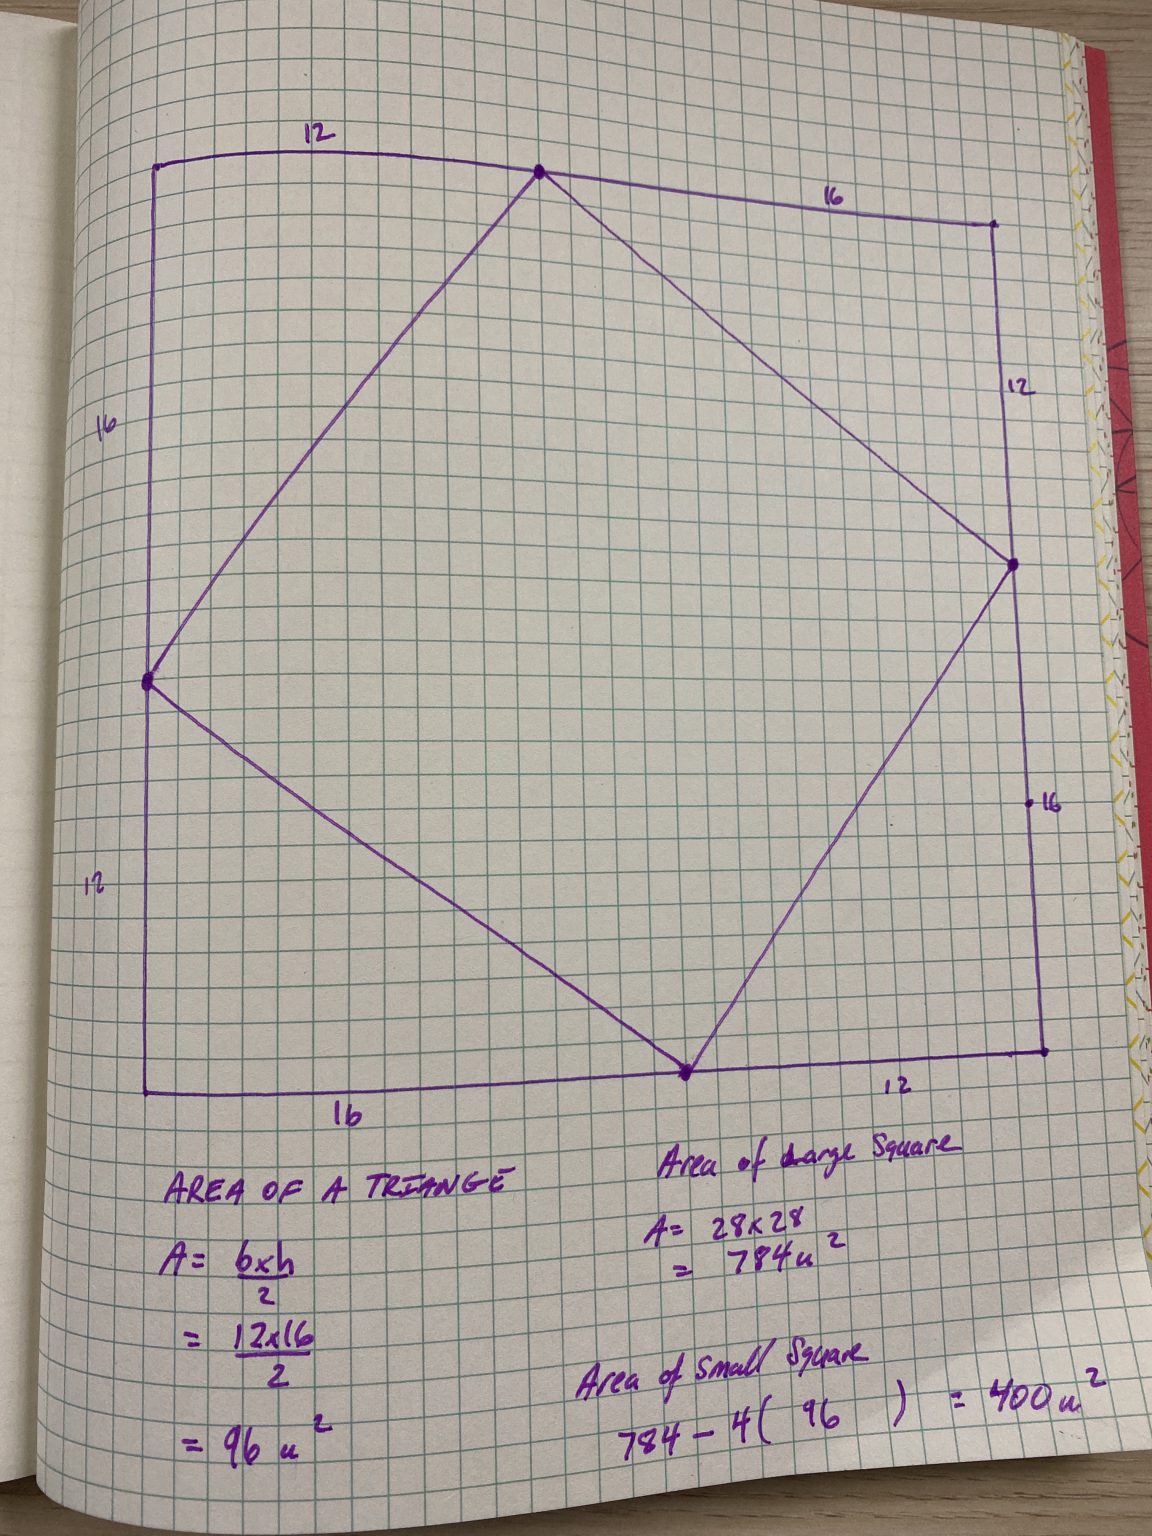 12
16
16
12
12
16
16
12
AREA OF A TRIANGE
A = bxh
2
= 12x16
2
= 96 u²
Area of Large Square
A = 28x28
= 784u²
Area of Small Square
784 - 4( 96 ) = 400u²